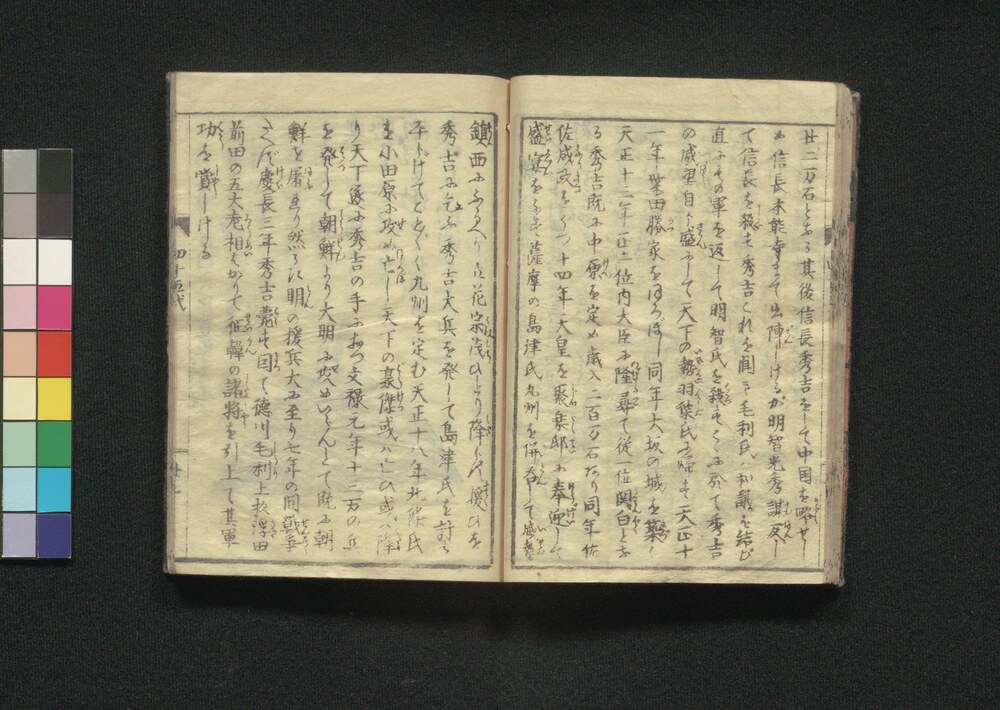 廿二万石となる其後信長秀吉をして中国を略せし
め信長本能寺まで出陣しけるが明智光秀謀反し
て信長を殺す秀吉これを聞き毛利氏と和議を結び
直にその軍を返して明智氏を殺すこゝに於て秀吉
の威望自ら盛にして天下の権羽柴氏に帰す天正十
一年柴田勝家をほろぼし同年大坂の城を築く
天正十二年正二位内大臣に隆尋て従一位関白とな
る秀吉既に中原を定め歳入二百万石なり同年佐
佐成政をうつ十四年天皇を聚楽邸に奉迎して
盛宴をなす薩摩の島津氏九州を併呑して威勢
鎮西にふるへり立花宗茂ひとり降らず援ひを
秀吉に乞ふ秀吉大兵を発して島津氏を討ち
平らげてこと〴〵く九州を定む天正十八年北條氏
を小田原に攻め亡し天下の豪傑或ハ亡び或ハ降
り天下遂に秀吉の手におつ文禄元年十二万の兵
を発して朝鮮より大明に攻めいらんとて既に朝
鮮を屠れり然るに明の援兵大に至り七年の間戦争
たえず慶長三年秀吉薨ず因て徳川毛利上杉浮田
前田の五大老相はかりて征韓の諸将を引上て其軍
功を賞しける
四十五代
廿一